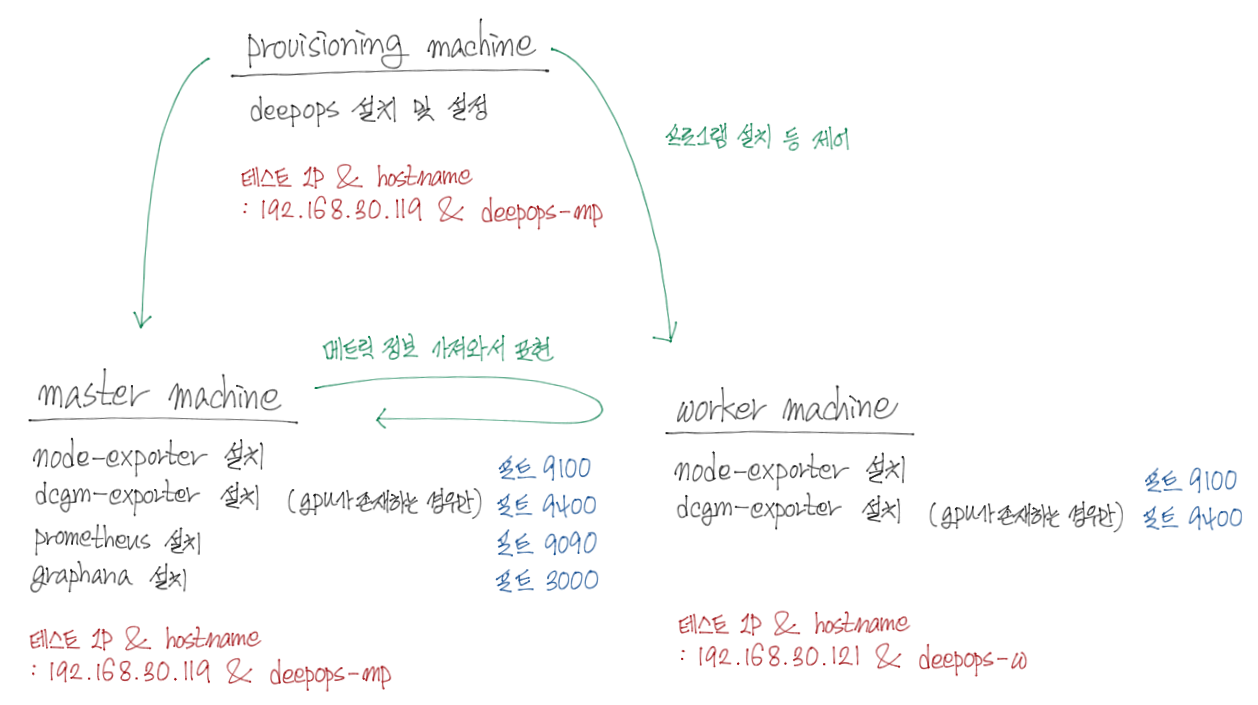 provisioning machine
deepops 설치 및 설정
프로그램 설치 등 제어
테스트 IP & hostname
: 192.168.30.119 & deepops-mp
메트릭 정보 가져와서 표현
master machine
node-exporter 설치 포트 9100
dcgm-exporter 설치 (gpu가 존재하는 경우만) 포트 9400
prometheus 설치 포트 9090
graphana 설치 포트 3000
테스트 IP & hostname
: 192.168.30.119 & deepops-mp
worker machine
node-exporter 설치 포트 9100
dcgm-exporter 설치 (gpu가 존재하는 경우만) 포트 9400
테스트 IP & hostname
: 192.168.30.121 & deepops-w